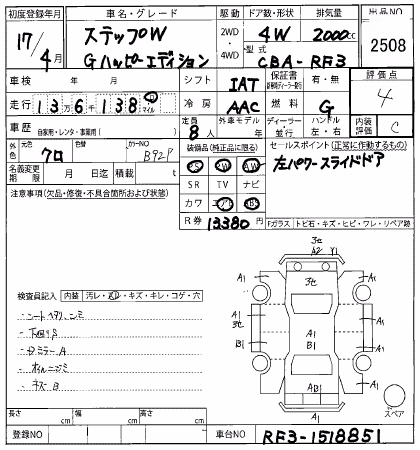 初度登録年月 車名・グレード 駆動 ドア数・形状 排気量 出品NO
17/4月 ステップW 2WD・4WD 4W 2000cc 2508
Gハッピーエディション 型式 CBA-RF3
車検 年 月 シフト IAT 保証書 有・無 評価点
走行 13万6千138 マイル 冷房 AAC 燃料 G 4
車歴 自家用・レンタ・事業用( ) 定員 8人 外車モデル 年 ディーラー・並行 ハンドル 左・右 内装評価 C
外色 元色 クロ 色替 カラーNO B92P 装備品(純正品に限る) セールスポイント(正常に作動するもの)
名義変更期限 月 日迄 積載 t PS PW AW 左パワースライドドア
注意事項(欠品・修復・不具合箇所および状態) SR TV ナビ
カワ
R券 13380円 Fガラス トビ石・キズ・ヒビ・ワレ・リペア跡
3セ
A2 Y1
A1 3セ A1
A1
3セ
B1
A1
B1
A1
A1
AB1
A1
A1
スペア
検査員記入 内装 汚レ・キズ・キレ・コゲ・穴
下回りS
ドミラーA
長さ cm 幅 cm 高さ cm
登録NO 車台NO RF3-1518851